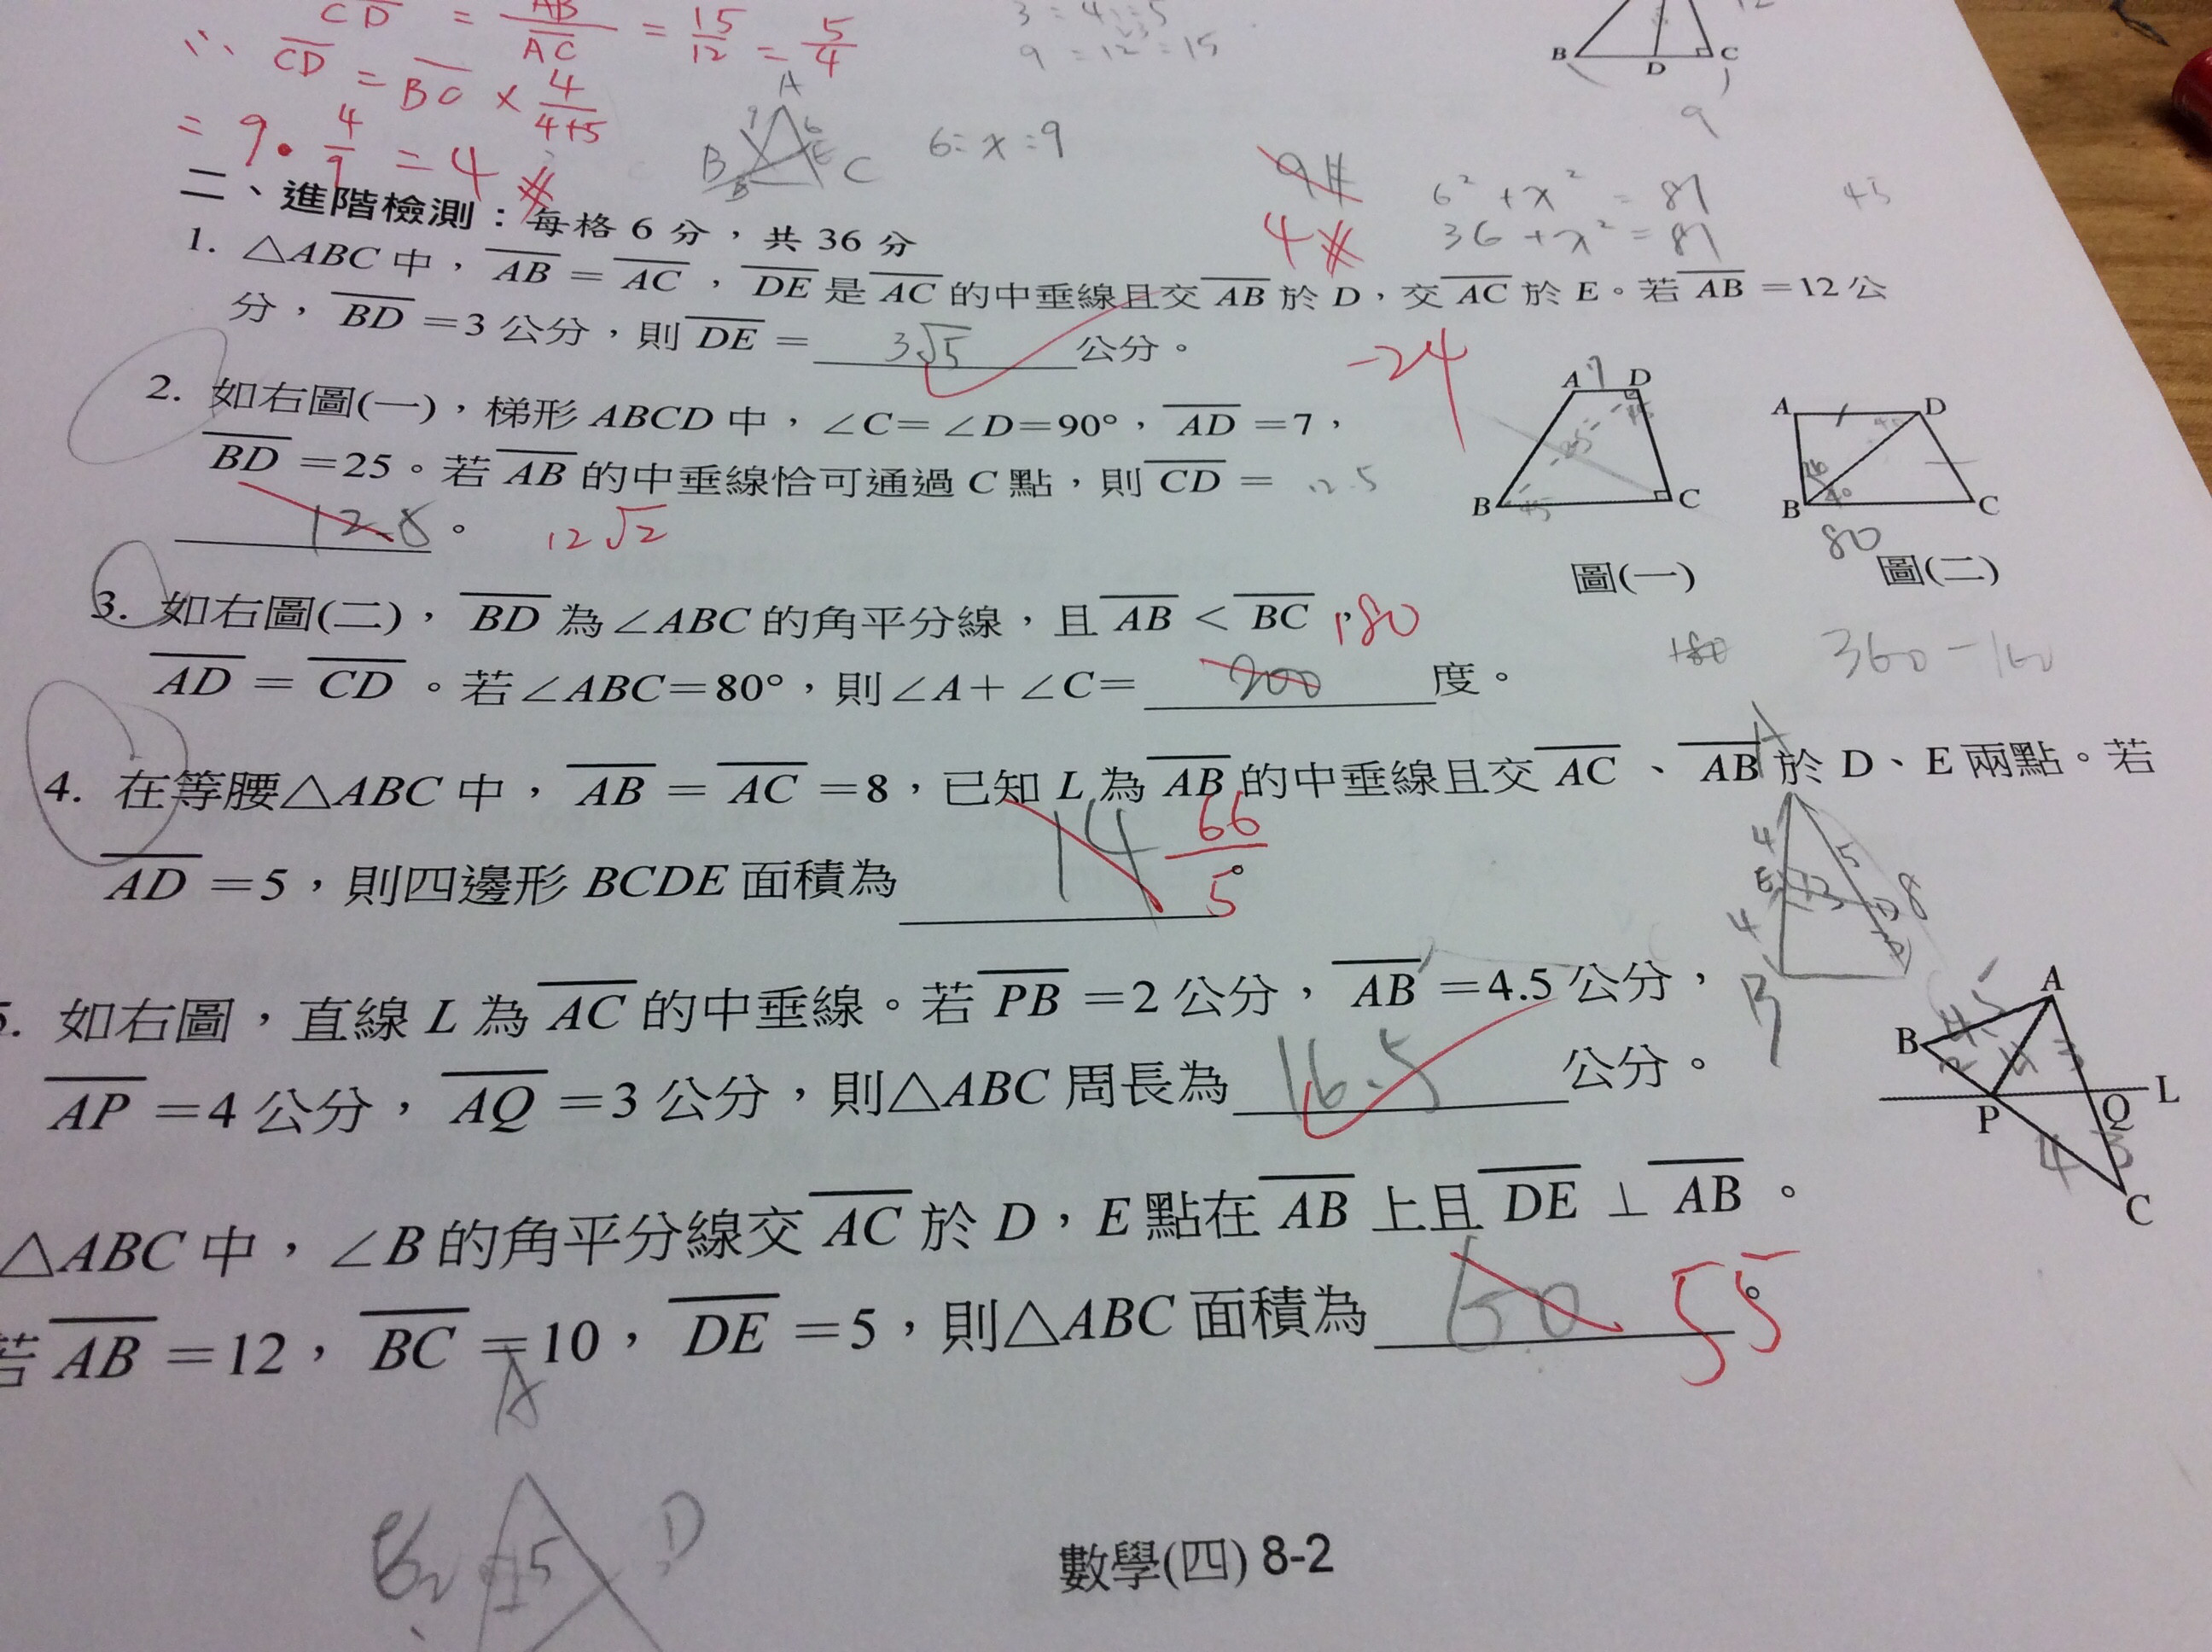 CD = AB/AC = 15/12 = 5/4
∴ CD = BC × 4/(4+5)
= 9 · 4/9 = 4 #
3 : 4 : 5
9 : 12 : 15
A
B
C
6 : x : 9
B D C
9
12
9#
4#
6² + x² = 81
36 + x² = 81
45
二、進階檢測:每格 6 分,共 36 分
1. △ABC 中,AB = AC,DE 是 AC 的中垂線且交 AB 於 D,交 AC 於 E。若 AB =12 公
分,BD =3 公分,則 DE = 3√5 公分。
-24
2. 如右圖(一),梯形 ABCD 中,∠C=∠D=90°,AD =7,
BD =25。若 AB 的中垂線恰可通過 C 點,則 CD = 12.5
12.8 。 12√2
A 7 D
25
45
B C
圖(一)
A D
40
B C
80
圖(二)
3. 如右圖(二),BD 為∠ABC 的角平分線,且 AB < BC,
180
AD = CD 。若∠ABC=80°,則∠A+∠C= 200 度。
180
360-160
4. 在等腰△ABC 中,AB = AC =8,已知 L 為 AB 的中垂線且交 AC 、 AB 於 D、E 兩點。若
AD =5,則四邊形 BCDE 面積為 14 。
66/5
A
4 5
E 3 D 8
4
B
5. 如右圖,直線 L 為 AC 的中垂線。若 PB =2 公分,AB =4.5 公分,
AP =4 公分,AQ =3 公分,則△ABC 周長為 16.5 公分。
A
B 4.5
2 4 3
P Q L
4 3
C
△ABC 中,∠B 的角平分線交 AC 於 D,E 點在 AB 上且 DE ⊥ AB 。
若 AB =12,BC =10,DE =5,則△ABC 面積為 60 。
55
A
D
5
數學(四) 8-2